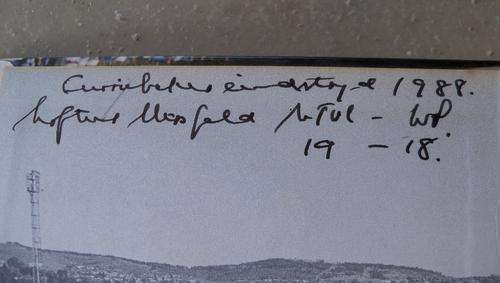 Curriebeker eindstryd 1988.
Loftus Versfeld N TVL - WP.
19 - 18.